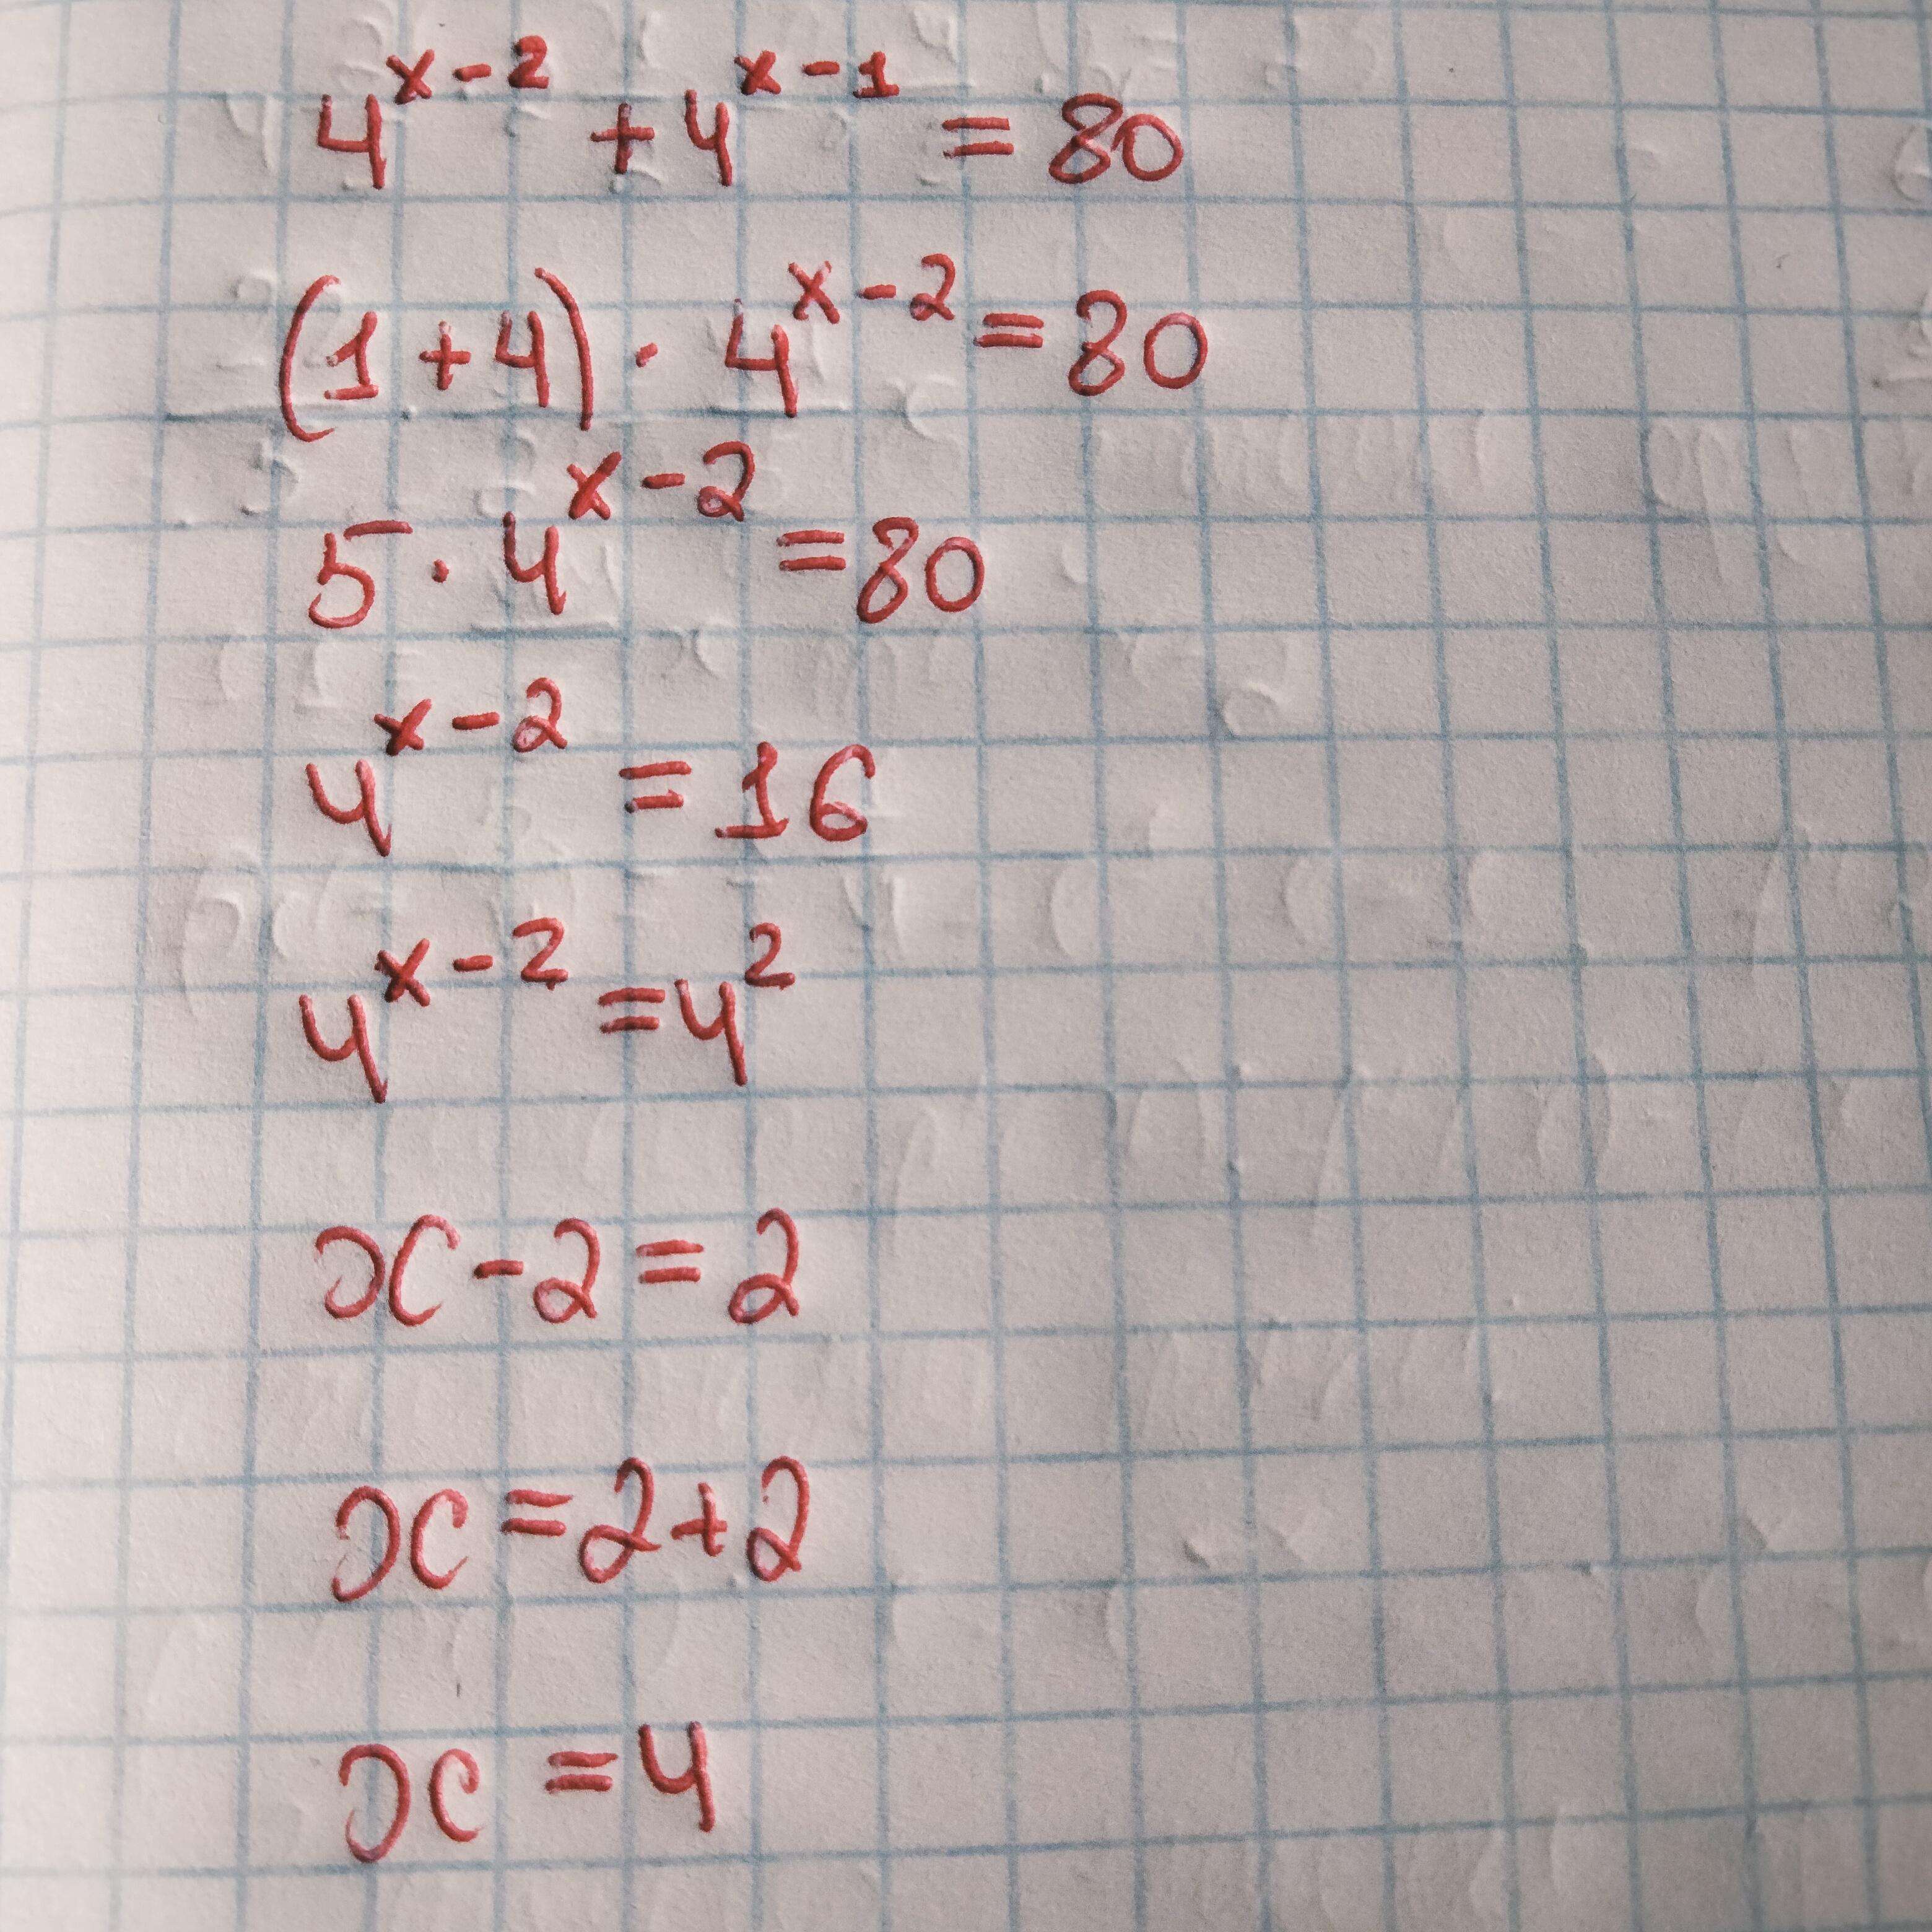 4^{x-2} + 4^{x-1} = 80
(1 + 4) · 4^{x-2} = 80
5 · 4^{x-2} = 80
4^{x-2} = 16
4^{x-2} = 4^2
x - 2 = 2
x = 2 + 2
x = 4